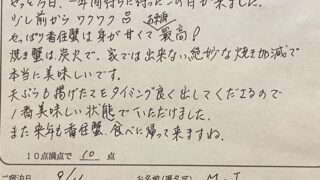 やっと今日、一年間待ちに待ったこの日が来ました。
少し前からワクワク
お刺身
やっぱり香住蟹は身が甘くて最高!
焼き蟹は炭火で、家では出来ない絶妙な焼き加減で
本当に美味しいです。
天ぷらも揚げたてをタイミング良く出してくださるので
1番美味しい状態でいただけました。
また来年も香住蟹、食べに帰って来ますね。
10点満点で 10 点
ご宿泊日 9/
お名前(匿名可) M.I